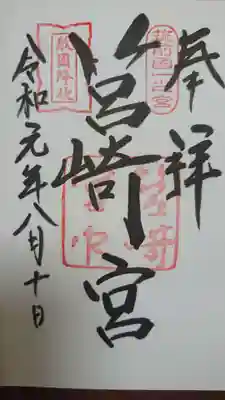 奉拝
筑前国一之宮
筥崎宮
敵國降伏
令和元年八月十日